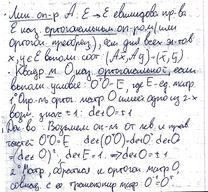 Лин оп-р A: E→E евклидова пр-ва
E наз. ортогональным оп-ром (или
ортогон преобраз), если для всех эл-тов
x, y ∈ E вып соот (Ax, Ay) = (x, y)
Квадр м. O наз ортогональной, если
вып условие: OᵀO = E, где E-ед матр
1° Опр-ль орт матр O имеет одно из 2-х
знач = ±1: det O = ±1
Док-во: Возьмём оп-ль от лев и прав
частей OᵀO = E det(OᵀO) = det Oᵀ · det O =
= (det O)² · det E = 1 ⇒ det O = ±1
2° Матр, обратная к ортогон матр O,
совпад с её транспонир матр O⁻¹ = Oᵀ